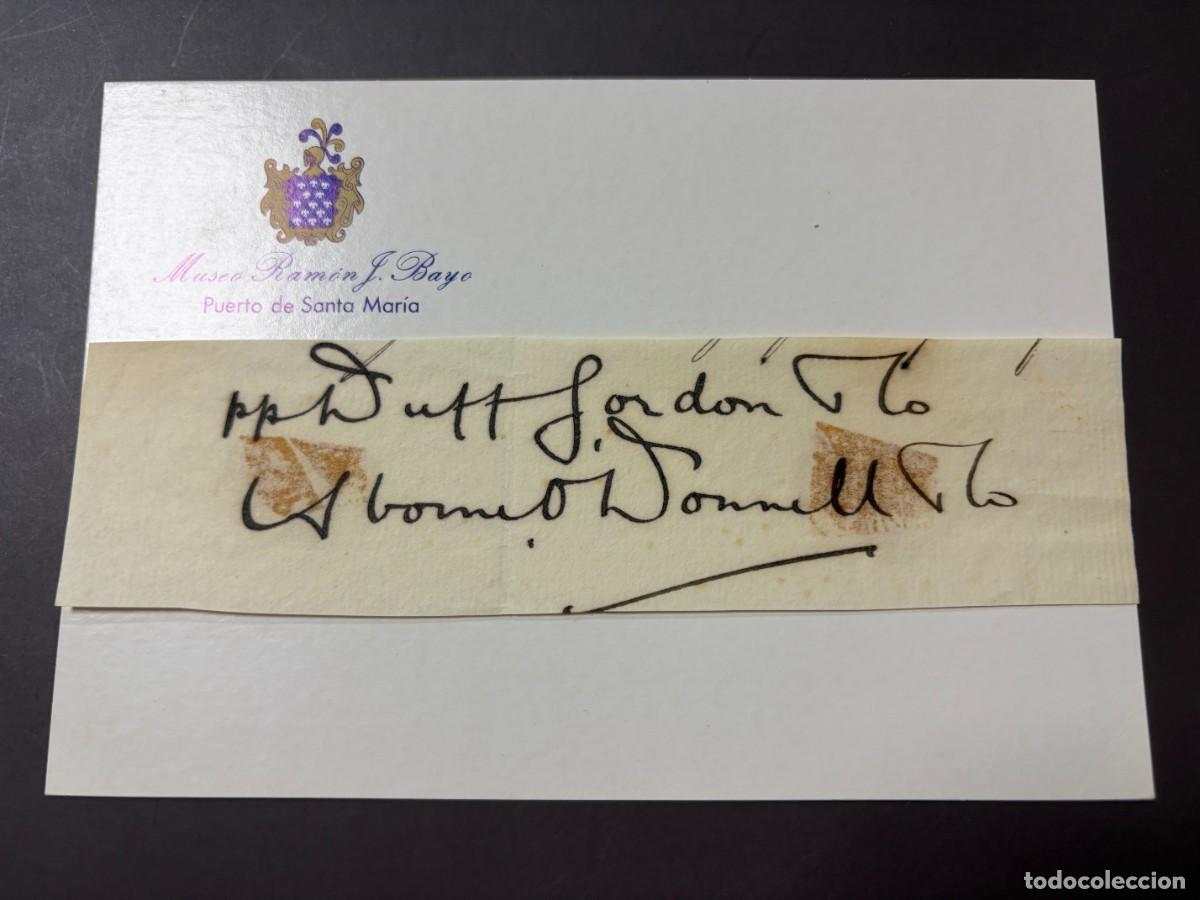 Museo Ramón J. Bayo
Puerto de Santa María
pp Duff Gordon & Co
Osborne O'Donnell & Co
todocoleccion